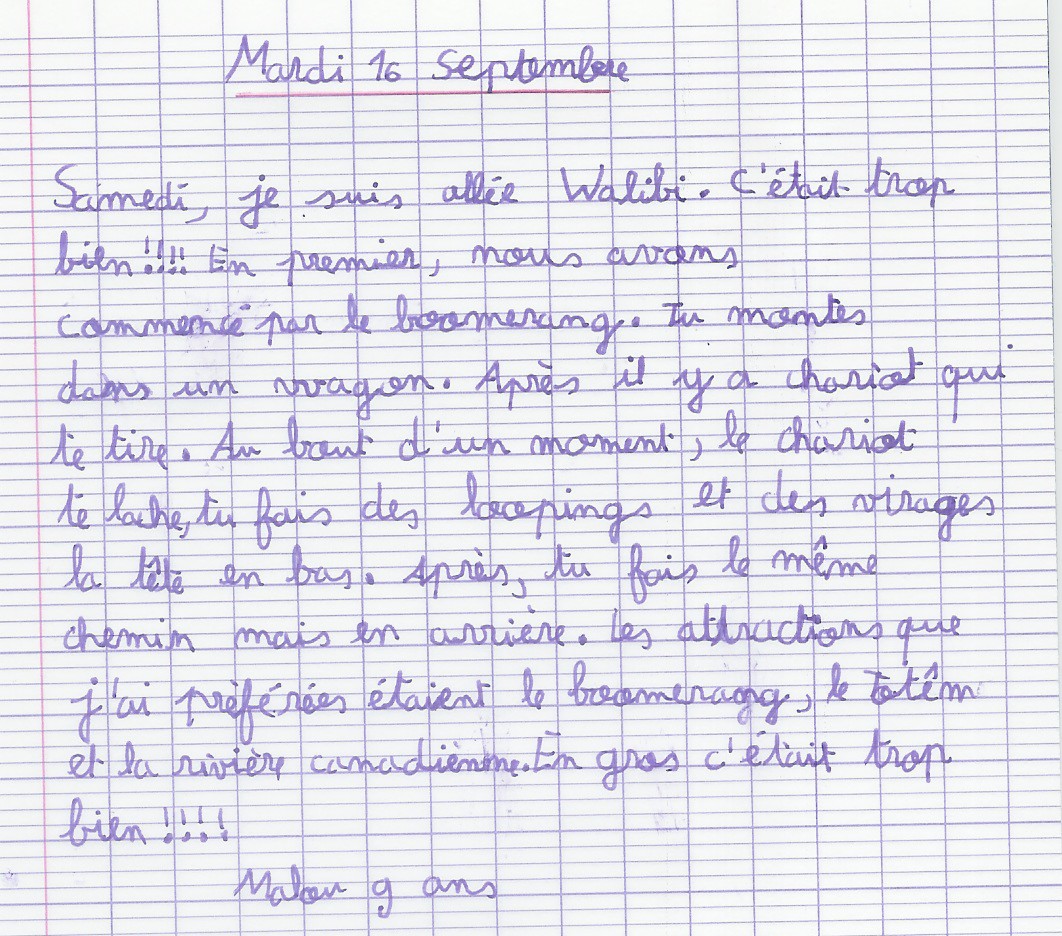 Mardi 16 septembre
Samedi, je suis allée Walibi. C'était trop
bien !!!! En premier, nous avons
commencé par le boomerang. Tu montes
dans un wagon. Après il y a chariot qui
te tire. Au bout d'un moment, le chariot
te lache, tu fais des loopings et des virages
la tête en bas. Après, tu fais le même
chemin mais en arrière. Les attractions que
j'ai préférées étaient le boomerang, le totêm
et la rivière canadiènne. En gros c'était trop
bien !!!!
Malou 9 ans